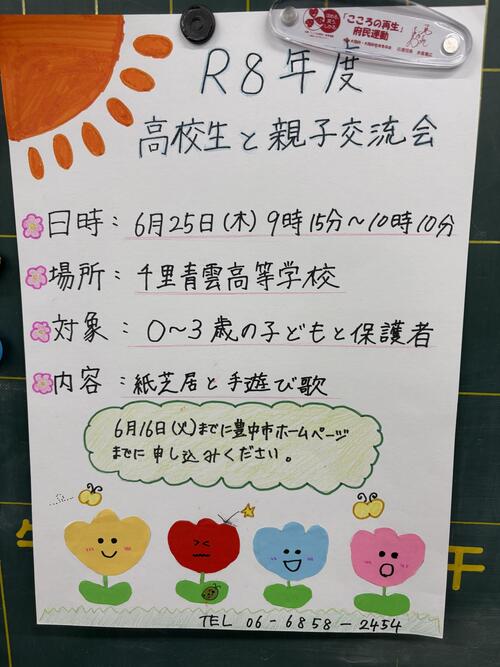 「こころの再生」
府民運動
R8年度
高校生と親子交流会
日時：6月25日(木)9時15分～10時10分
場所：千里青雲高等学校
対象：0～3歳の子どもと保護者
内容：紙芝居と手遊び歌
6月16日(火)までに豊中市ホームページ
までに申し込みください。
TEL 06-6858-2454